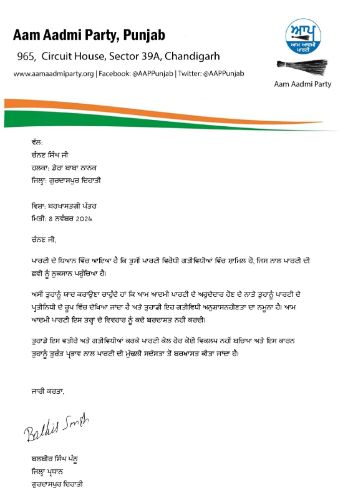 Aam Aadmi Party, Punjab
965, Circuit House, Sector 39A, Chandigarh
www.aamaadmiparty.org | Facebook: @AAPPunjab | Twitter: @AAPPunjab
ਆਪ
ਆਮ ਆਦਮੀ
ਪਾਰਟੀ
Aam Aadmi Party
ਵੱਲ:
ਚੰਨਣ ਸਿੰਘ ਜੀ
ਹਲਕਾ: ਡੇਰਾ ਬਾਬਾ ਨਾਨਕ
ਜਿਲ੍ਹਾ: ਗੁਰਦਾਸਪੁਰ ਦਿਹਾਤੀ
ਵਿਸ਼ਾ: ਬਰਖਾਸਤਗੀ ਪੱਤਰ
ਮਿਤੀ: 8 ਨਵੰਬਰ 2024
ਚੰਨਣ ਜੀ,
ਪਾਰਟੀ ਦੇ ਧਿਆਨ ਵਿੱਚ ਆਇਆ ਹੈ ਕਿ ਤੁਸੀਂ ਪਾਰਟੀ ਵਿਰੋਧੀ ਗਤੀਵਿਧੀਆਂ ਵਿੱਚ ਸ਼ਾਮਿਲ ਹੋ, ਜਿਸ ਨਾਲ ਪਾਰਟੀ ਦੀ
ਛਵੀ ਨੂੰ ਨੁਕਸਾਨ ਪਹੁੰਚਿਆ ਹੈ।
ਅਸੀਂ ਤੁਹਾਨੂੰ ਯਾਦ ਕਰਾਉਣਾ ਚਾਹੁੰਦੇ ਹਾਂ ਕਿ ਆਮ ਆਦਮੀ ਪਾਰਟੀ ਦੇ ਅਹੁਦੇਦਾਰ ਹੋਣ ਦੇ ਨਾਤੇ ਤੁਹਾਨੂੰ ਪਾਰਟੀ ਦੇ
ਪ੍ਰਤੀਨਿਧੀ ਦੇ ਰੂਪ ਵਿੱਚ ਦੇਖਿਆ ਜਾਂਦਾ ਹੈ ਅਤੇ ਤੁਹਾਡੀ ਇਹ ਗਤੀਵਿਧੀ ਅਨੁਸ਼ਾਸਨਹੀਣਤਾ ਦਾ ਨਮੂਨਾ ਹੈ। ਆਮ
ਆਦਮੀ ਪਾਰਟੀ ਇਸ ਤਰ੍ਹਾਂ ਦੇ ਵਿਵਹਾਰ ਨੂੰ ਕਦੇ ਬਰਦਾਸ਼ਤ ਨਹੀਂ ਕਰਦੀ।
ਤੁਹਾਡੇ ਇਸ ਵਤੀਰੇ ਅਤੇ ਗਤੀਵਿਧੀਆਂ ਕਰਕੇ ਪਾਰਟੀ ਕੋਲ ਹੋਰ ਕੋਈ ਵਿਕਲਪ ਨਹੀਂ ਬਚਿਆ ਅਤੇ ਇਸ ਕਾਰਨ
ਤੁਹਾਨੂੰ ਤੁਰੰਤ ਪ੍ਰਭਾਵ ਨਾਲ ਪਾਰਟੀ ਦੀ ਮੁੱਢਲੀ ਸਦੱਸਤਾ ਤੋਂ ਬਰਖਾਸਤ ਕੀਤਾ ਜਾਂਦਾ ਹੈ।
ਜਾਰੀ ਕਰਤਾ,
Balbir Singh
ਬਲਬੀਰ ਸਿੰਘ ਪੰਨੂ
ਜਿਲ੍ਹਾ ਪ੍ਰਧਾਨ
ਗੁਰਦਾਸਪੁਰ ਦਿਹਾਤੀ